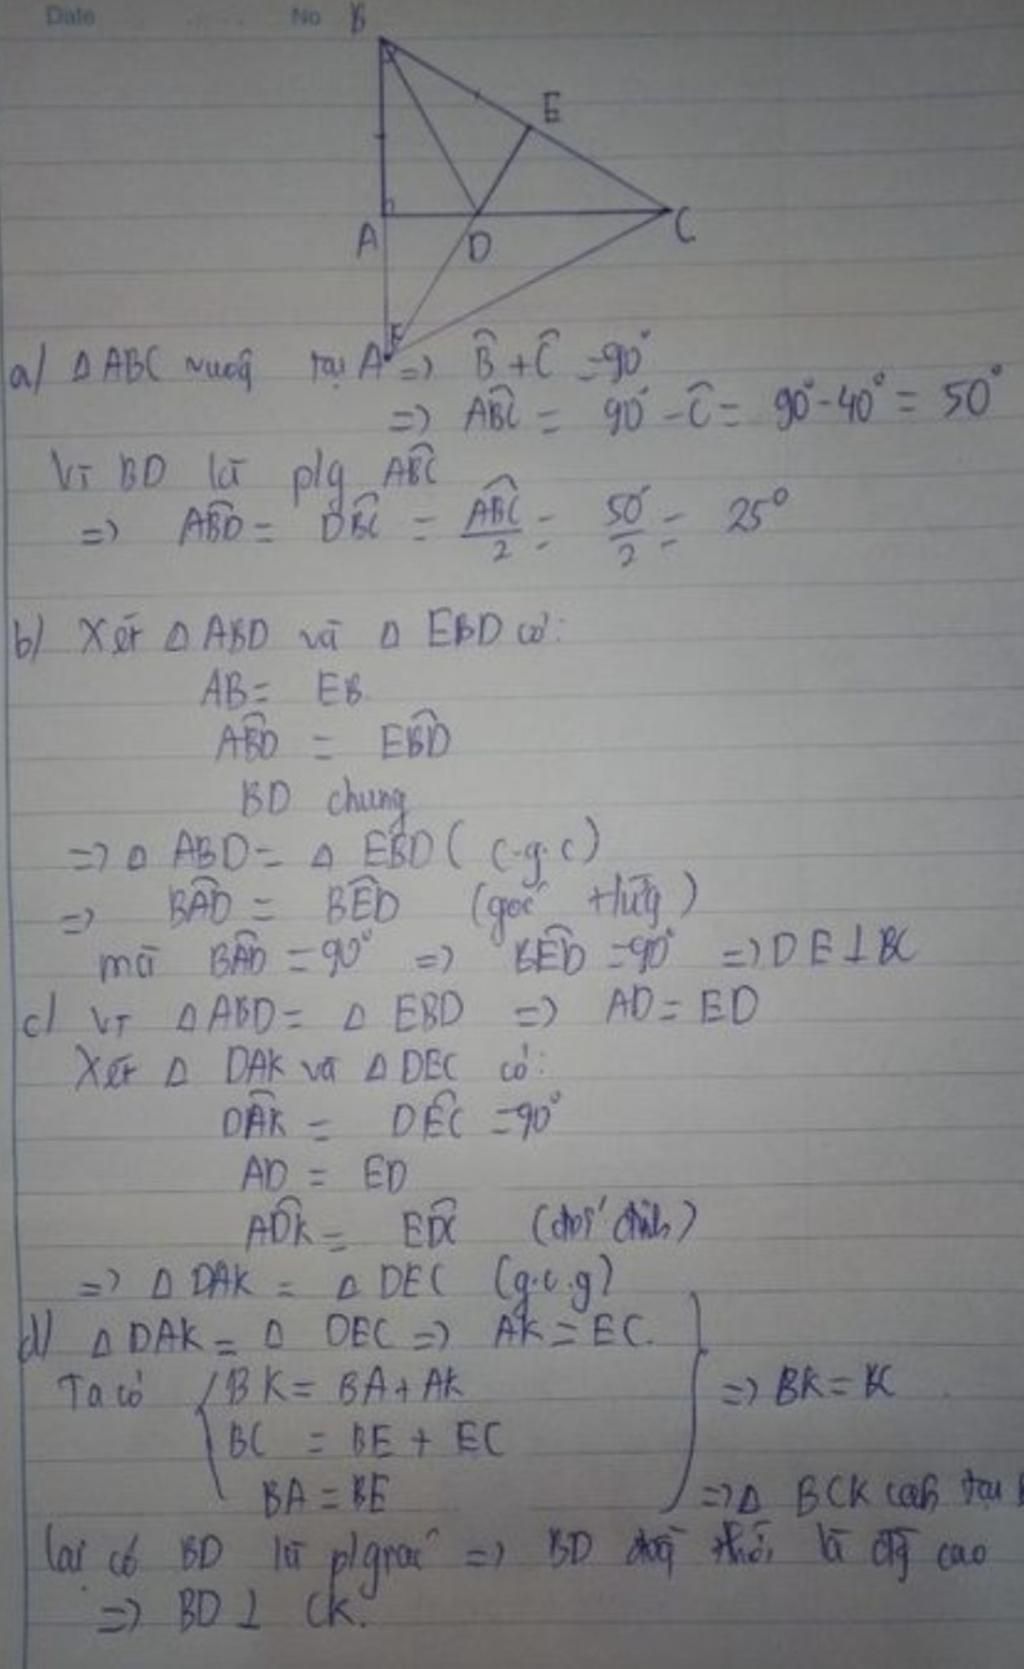 Date No
B
E
A D C
a) Δ ABC vuông tại A => B̂ + Ĉ = 90°
=> AB̂C = 90° - Ĉ = 90° - 40° = 50°
Vì BD là p/g AB̂C
=> AB̂D = DB̂C = AB̂C/2 = 50°/2 = 25°
b) Xét Δ ABD và Δ EBD có:
AB = EB
AB̂D = EB̂D
BD chung
=> Δ ABD = Δ EBD (c.g.c)
=> BÂD = BÊD (góc tứ)
mà BÂD = 90° => BÊD = 90° => DE ⊥ BC
c) Vì Δ ABD = Δ EBD => AD = ED
Xét Δ DAK và Δ DEC có:
DÂK = DÊC = 90°
AD = ED
AD̂K = ED̂C (đối đỉnh)
=> Δ DAK = Δ DEC (g.c.g)
d) Δ DAK = Δ DEC => AK = EC
Ta có { BK = BA + AK
BC = BE + EC } => BK = BC
BA = BE => Δ BCK cân tại B
lại có BD là p/giác => BD đồng thời là đg cao
=> BD ⊥ CK.